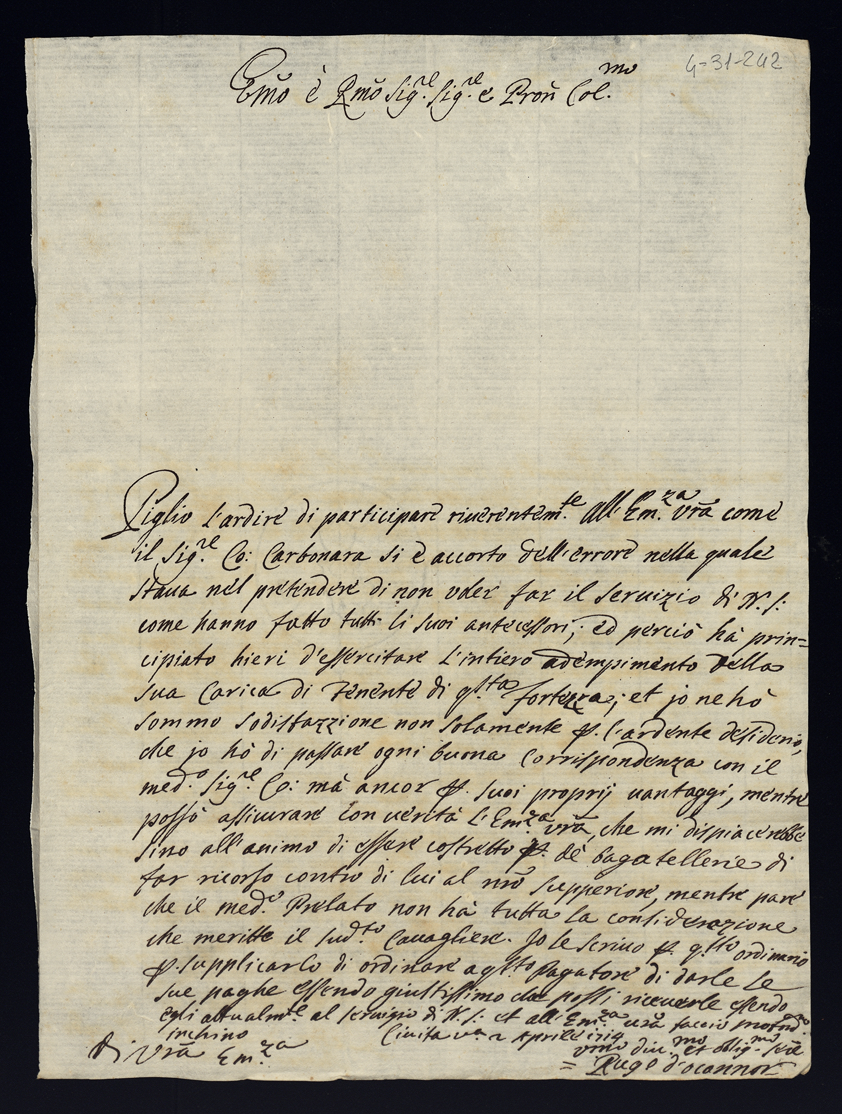 4-31-242
Em̃o è Rmõ Sig.re Sig.re e Pron̄ Col.mo
Piglio l'ardire di participare riuerentem.te all'Em.za vrã come
il Sig.re Co: Carbonara si è accorto dell'errore nella quale
staua nel pretendere di non voler far il seruizio di N. S:
come hanno fatto tutti li suoi antecessori; ed perciò hà prin=
cipiato hieri d'essercitare l'intiero adempimento della
sua Carica di Tenente di q.sta fortezza; et jo ne hò
sommo sodisfazzione non solamente p. l'ardente desiderio,
che jo hò di passare ogni buona Corrispondenza con il
med.o Sig.re Co: mà ancor p. suoi proprij vantaggi, mentre
posso assicurare con verità l'Em.za vrã, che mi dispiacerebbe
sino all'animo di essere costretto p. de bagatellerie di
far ricorso contro di lui al nrõ supperiore, mentre pare
che il med.o Prelato non hà tutta la considerazione
che meritte il sud.to Cauagliere. Jo le scriuo p. q.sto ordinario
p. supplicarlo di ordinare a q.sto Pagatore di darle le
sue paghe essendo giustissimo che possi riceuerle essendo
egli attualm.te al seruigio di N. S: et all'Em.za vrã faccio profond.o
inchino
Di Vrã Em.za
Ciuita v.a 2 Aprile 1714
vmõ diu.mo et oblig.mo Ser.e
= Rugo d'oconnor